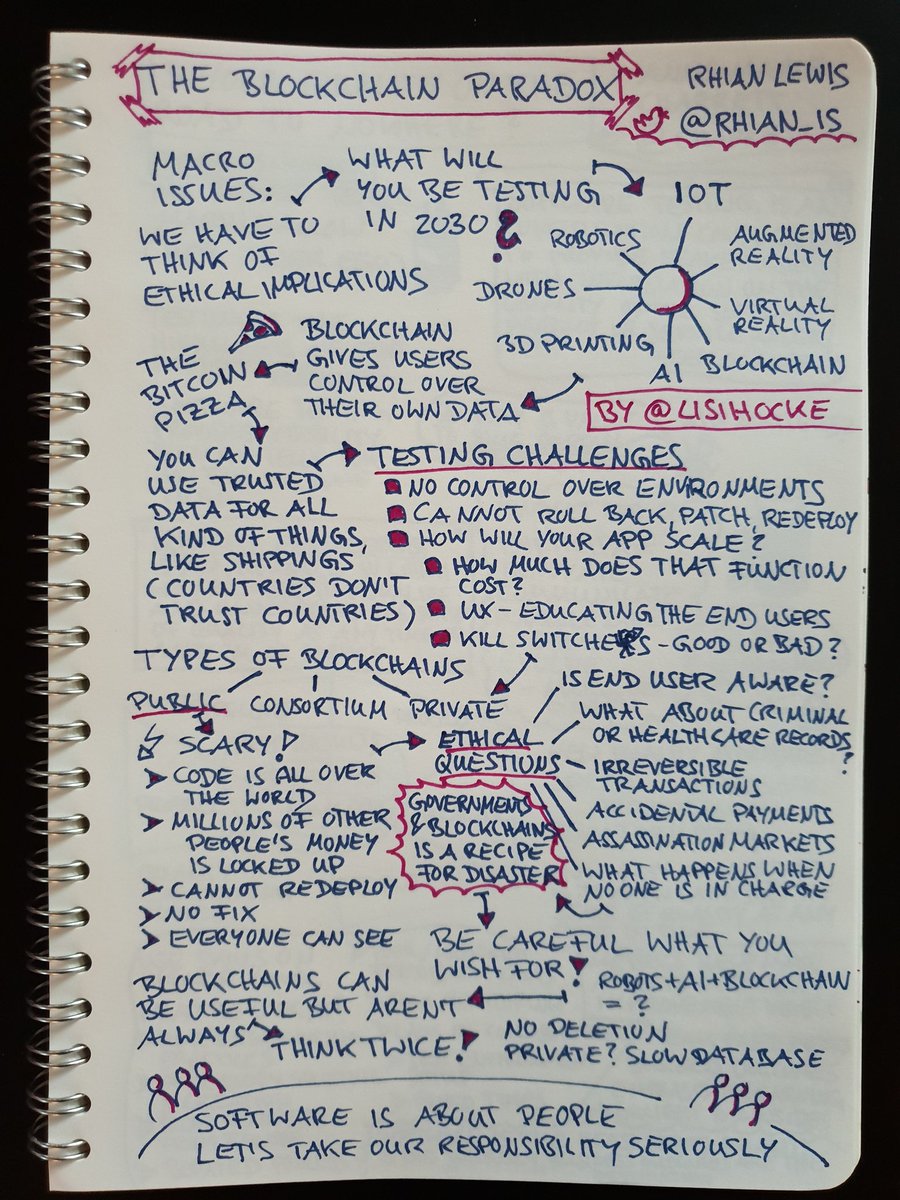 THE BLOCKCHAIN PARADOX
RHIAN LEWIS
@RHIAN_IS
MACRO
ISSUES:
WE HAVE TO
THINK OF
ETHICAL IMPLICATIONS
WHAT WILL
YOU BE TESTING
IN 2030?
IOT
AUGMENTED
REALITY
VIRTUAL
REALITY
BLOCKCHAIN
AI
3D PRINTING
DRONES
ROBOTICS
BY @LISIHOCKE
BLOCKCHAIN
GIVES USERS
CONTROL OVER
THEIR OWN DATA
THE
BITCOIN
PIZZA
YOU CAN
USE TRUSTED
DATA FOR ALL
KIND OF THINGS,
LIKE SHIPPINGS
(COUNTRIES DON'T
TRUST COUNTRIES)
TESTING CHALLENGES
NO CONTROL OVER ENVIRONMENTS
CANNOT ROLL BACK, PATCH, REDEPLOY
HOW WILL YOUR APP SCALE?
HOW MUCH DOES THAT FUNCTION
COST?
UX - EDUCATING THE END USERS
KILL SWITCHES - GOOD OR BAD?
TYPES OF BLOCKCHAINS
PUBLIC CONSORTIUM PRIVATE
SCARY!
CODE IS ALL OVER
THE WORLD
MILLIONS OF OTHER
PEOPLE'S MONEY
IS LOCKED UP
CANNOT REDEPLOY
NO FIX
EVERYONE CAN SEE
ETHICAL
QUESTIONS
IS END USER AWARE?
WHAT ABOUT CRIMINAL
OR HEALTHCARE RECORDS
?
IRREVERSIBLE
TRANSACTIONS
ACCIDENTAL PAYMENTS
ASSASSINATION MARKETS
WHAT HAPPENS WHEN
NO ONE IS IN CHARGE
GOVERNMENTS
& BLOCKCHAINS
IS A RECIPE
FOR DISASTER
BE CAREFUL WHAT YOU
WISH FOR!
ROBOTS+AI+BLOCKCHAIN
= ?
BLOCKCHAINS CAN
BE USEFUL BUT ARENT
ALWAYS
THINK TWICE!
NO DELETION
PRIVATE? SLOW DATABASE
SOFTWARE IS ABOUT PEOPLE
LET'S TAKE OUR RESPONSIBILITY SERIOUSLY